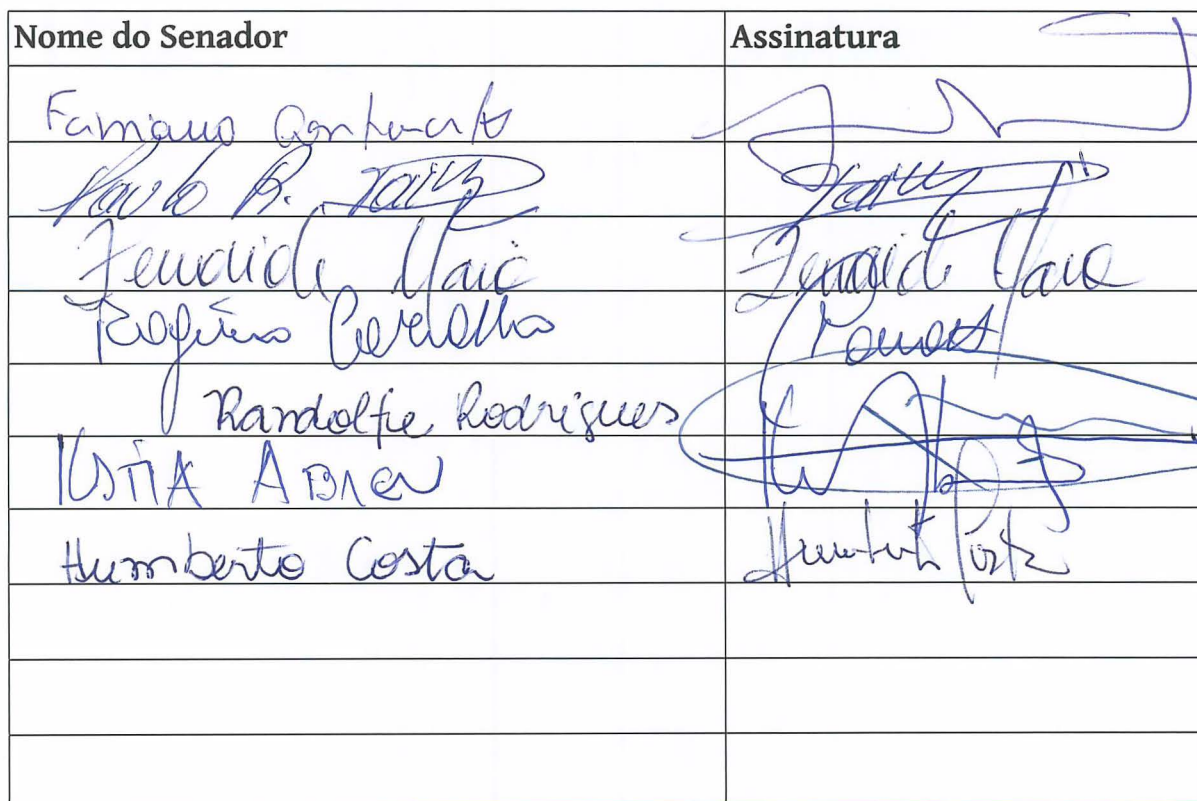 Nome do Senador Assinatura
Fabiano Contarato
Paulo R.
Zenaide Maia Zenaide Maia
Rogério Carvalho
Randolfe Rodrigues
KÁTIA ABREU
Humberto Costa Humberto Costa